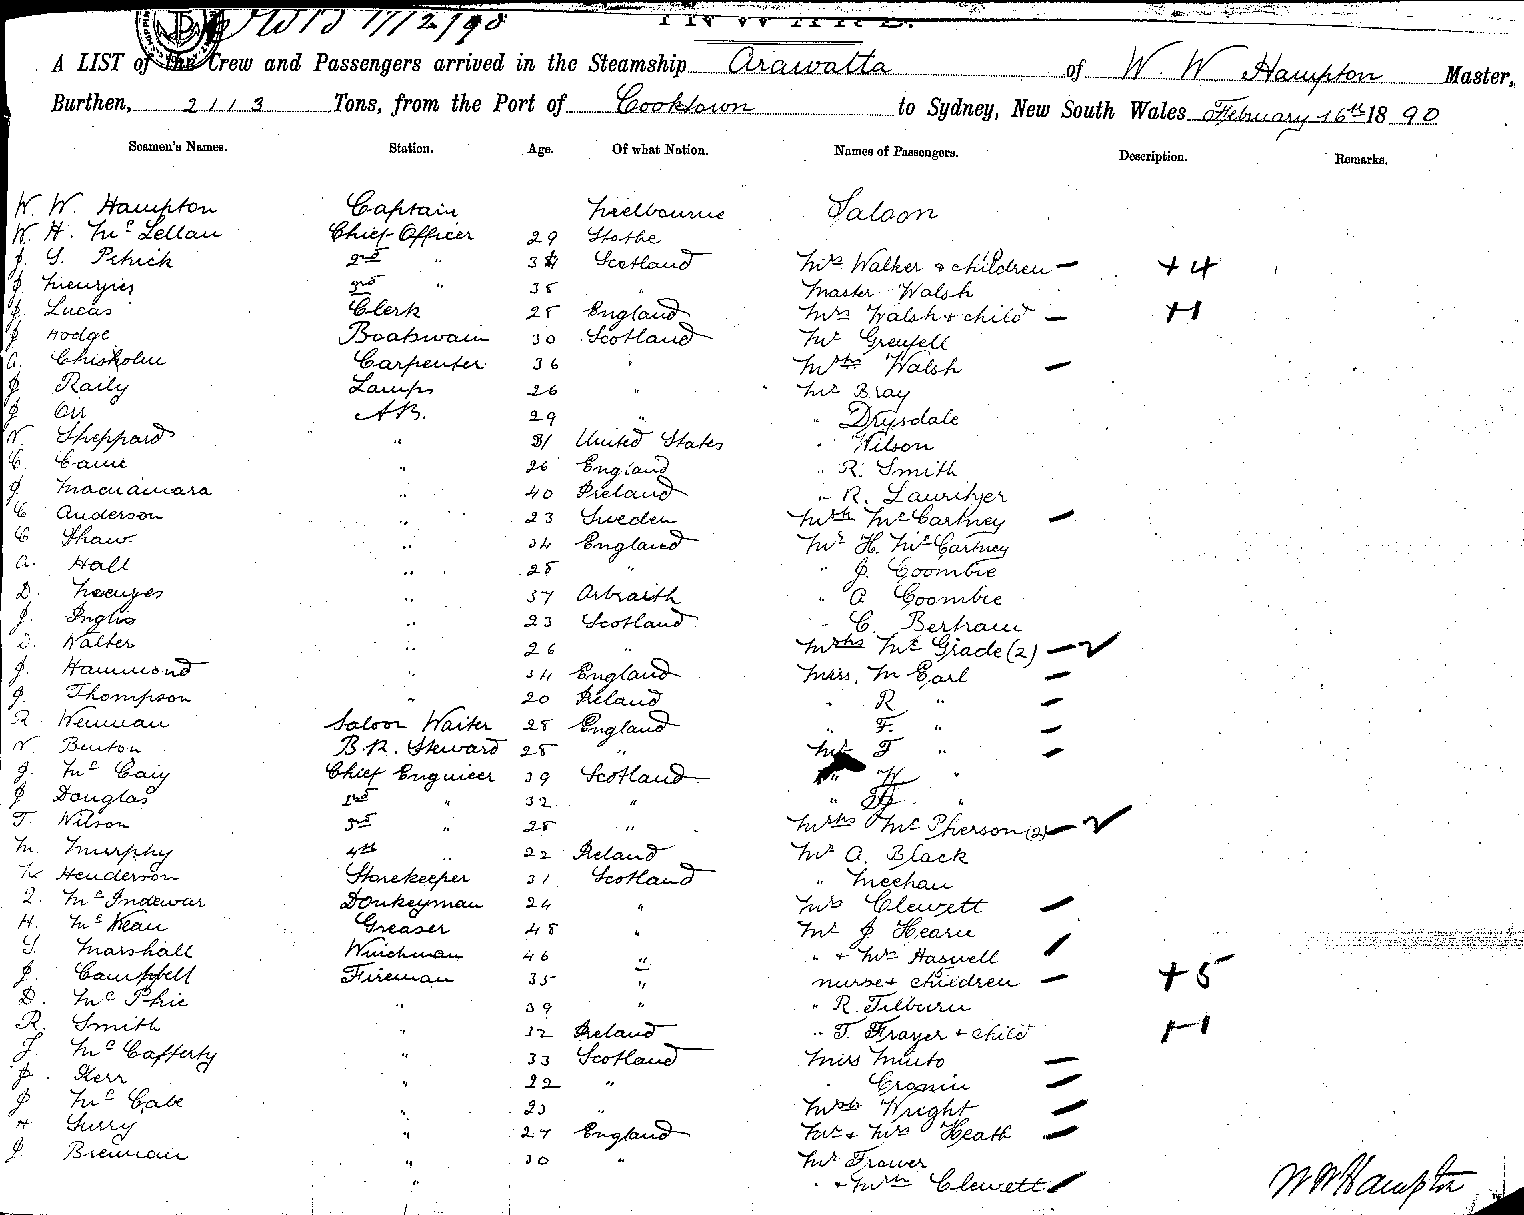 17/2/90
INWARD.
A LIST of the Crew and Passengers arrived in the Steamship Arawatta of W. W. Hampton Master,
Burthen, 2113 Tons, from the Port of Cooktown to Sydney, New South Wales February 16th 1890
Seamen's Names. Station. Age. Of what Nation. Names of Passengers. Description. Remarks.
W. W. Hampton Captain Melbourne Saloon
W. H. Mc Lellan Chief Officer 29
J. S. 2nd " Scotland Mrs Walker & children — +4
J. Menzies 3rd " 38 " Master Walsh
J. Lucas Clerk 28 England Mrs Walsh & child — +1
J. Hodge Boatswain 30 Scotland Mr Grenfell
A. Chisholm Carpenter 36 " Mrs Walsh —
J. Raily Lamps 26 " Mr Bray
J. Orr A.B. 29 " " Drysdale
W. Sheppard " 31 United States " Wilson
C. Came " 26 England " R. Smith
J. Macnamara " 40 Ireland " R. Lauritzer
C. Anderson " 23 Sweden Mrs McCartney —
C. Shaw " 34 England Mr H. McCartney
A. Hall " 28 " " J. Coombie
D. Menzies " 37 " A Coombie
J. Inglis " 23 Scotland " C. Bertram
Walter " 26 " Mc Grade (2) — ✓
J. Hammond " 34 England Miss. M Earl —
J. Thompson " 20 Ireland " R " —
R. Wenman Saloon Waiter 28 England " F. " —
W. Burton B.R. Steward 28 " Mr F " —
J. Mc Caig Chief Engineer 39 Scotland " W "
J. Douglas 2nd " 32 " " "
T. Wilson 3rd " 28 " Mc Pherson (2) — ✓
M. Murphy 4th " 22 Ireland Mr A. Black
Henderson Storekeeper 31 Scotland " Meehan
Mc Indewar Donkeyman 24 " Mrs Clewett —
H. Mc Kean Greaser 48 " Mr J Hearn
S. Marshall Winchman 46 " " & Mrs Haswell
J. Campbell Fireman 35 " nurse & children — +5
D. Mc Phie " 39 " " R. Tilburn
R. Smith " 32 Ireland " T. Frayer & child +1
J. Mc Cafferty " 33 Scotland Miss Muto —
J. Kerr " 22 " " Cronin —
J. Mc Cabe " 23 " Wright —
Surry " 27 England Mr & Mrs Heath —
J. Brennan " 30 " Mr Trower
" " & Mrs Clewett
W W Hampton